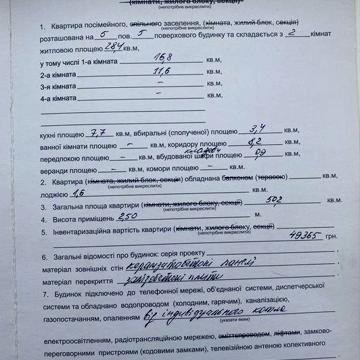 (кімнати, жилого блоку, секції)
1. Квартира посімейного, спільного заселення, (кімната, жилий блок, секція)
(непотрібне викреслити)
розташована на 5 пов 5 поверхового будинку та складається з 2 кімнат
житловою площею 28,4 кв.м,
у тому числі 1-а кімната 16,8 кв.м,
2-а кімната 11,6 кв.м,
3-я кімната – кв.м,
4-а кімната – кв.м,
кухні площею 7,7 кв.м, вбиральні (сполученої) площею 3,4 кв.м,
ванної кімнати площею – кв.м, коридору площею кв.м,
передпокою площею – кв.м, вбудованої шафи площею кв.м,
веранди площею – кв.м, комори площею – кв.м.
2. Квартира (кімната, жилий блок, секція) обладнана балконом (терасою) кв.м,
(непотрібне викреслити)
лоджією 1,6 кв.м.
3. Загальна площа квартири (кімнати, жилого блоку, секції) 50,2 кв.м.
(непотрібне викреслити)
4. Висота приміщень 2,50 м.
5. Інвентаризаційна вартість квартири (кімнати, жилого блоку, секції)
(непотрібне викреслити)
49365 грн.
6. Загальні відомості про будинок: серія проекту
матеріал зовнішніх стін керамзитобетонні панелі
матеріал перекриття залізобетонні плити
7. Будинок підключено до телефонної мережі, об'єднаної системи, диспетчерської
системи та обладнано водопроводом (холодним, гарячим), каналізацією,
газопостачанням, опаленням від індивідуального котла
(указати яким)
електроосвітленням, радіотрансляційною мережею, сміттєпроводом, ліфтами, замково-
переговорними пристроями (кодовими замками), телевізійною антеною колективного